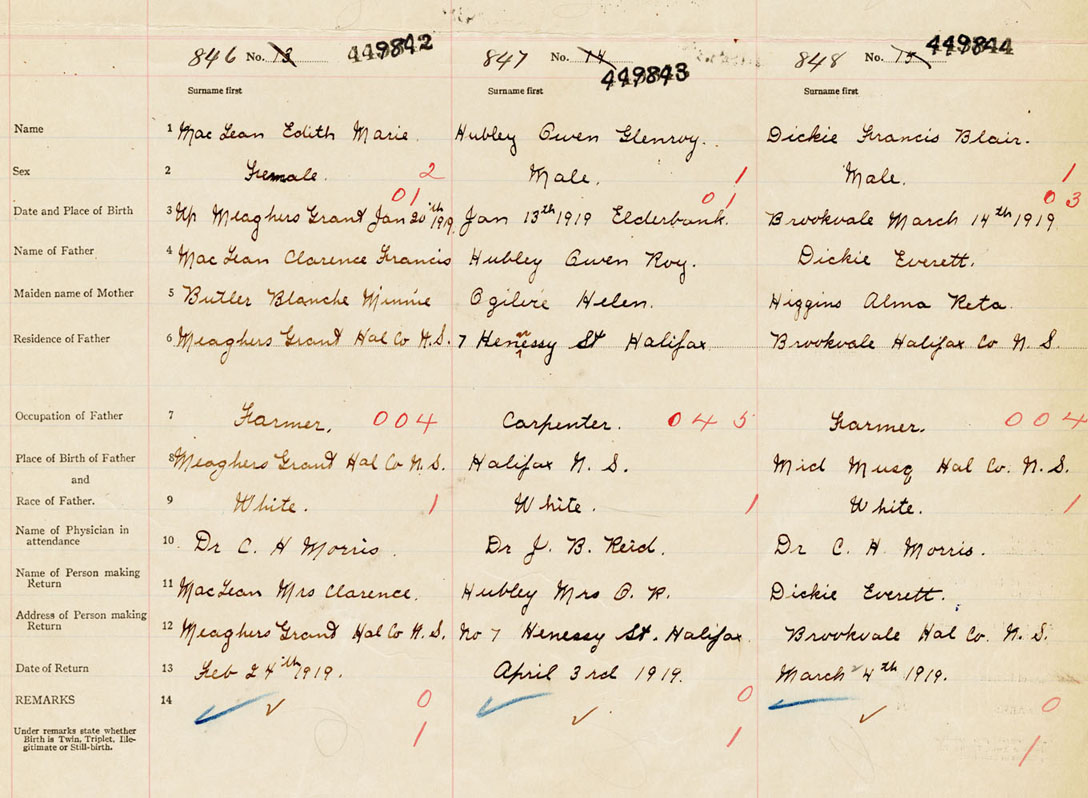 846 No. 13 449842 847 No. 14 449843 848 No. 15 449844
Surname first Surname first Surname first
Name 1 MacLean Edith Marie Hubley Owen Glenroy. Dickie Francis Blair.
Sex 2 Female. 2 Male. 1 Male. 1
01 01 03
Date and Place of Birth 3 Up Meaghers Grant Jan 20th 1919 Jan 13th 1919 Elderbank. Brookvale March 14th 1919
Name of Father 4 MacLean Clarence Francis Hubley Owen Roy. Dickie Everett.
Maiden name of Mother 5 Butler Blanche Minnie Ogilvie Helen. Higgins Alma Reta.
Residence of Father 6 Meaghers Grant Hal Co N.S. 7 Hennessy St Halifax Brookvale Halifax Co N.S.
Occupation of Father 7 Farmer, 004 Carpenter. 045 Farmer. 004
Place of Birth of Father 8 Meaghers Grant Hal Co N.S. Halifax N.S. Mid Musq Hal Co. N.S.
and
Race of Father. 9 White. 1 White. 1 White. 1
Name of Physician in
attendance 10 Dr C. H Morris. Dr J. B. Reid. Dr C. H. Morris.
Name of Person making
Return 11 MacLean Mrs Clarence. Hubley Mrs O. R. Dickie Everett.
Address of Person making
Return 12 Meaghers Grant Hal Co N.S. No 7 Henessy St. Halifax Brookvale Hal Co. N.S.
Date of Return 13 Feb 24th 1919. April 3rd 1919. March 4th 1919.
REMARKS 14 0 0 0
Under remarks state whether
Birth is Twin, Triplet, Ille-
gitimate or Still-birth. 1 1 1